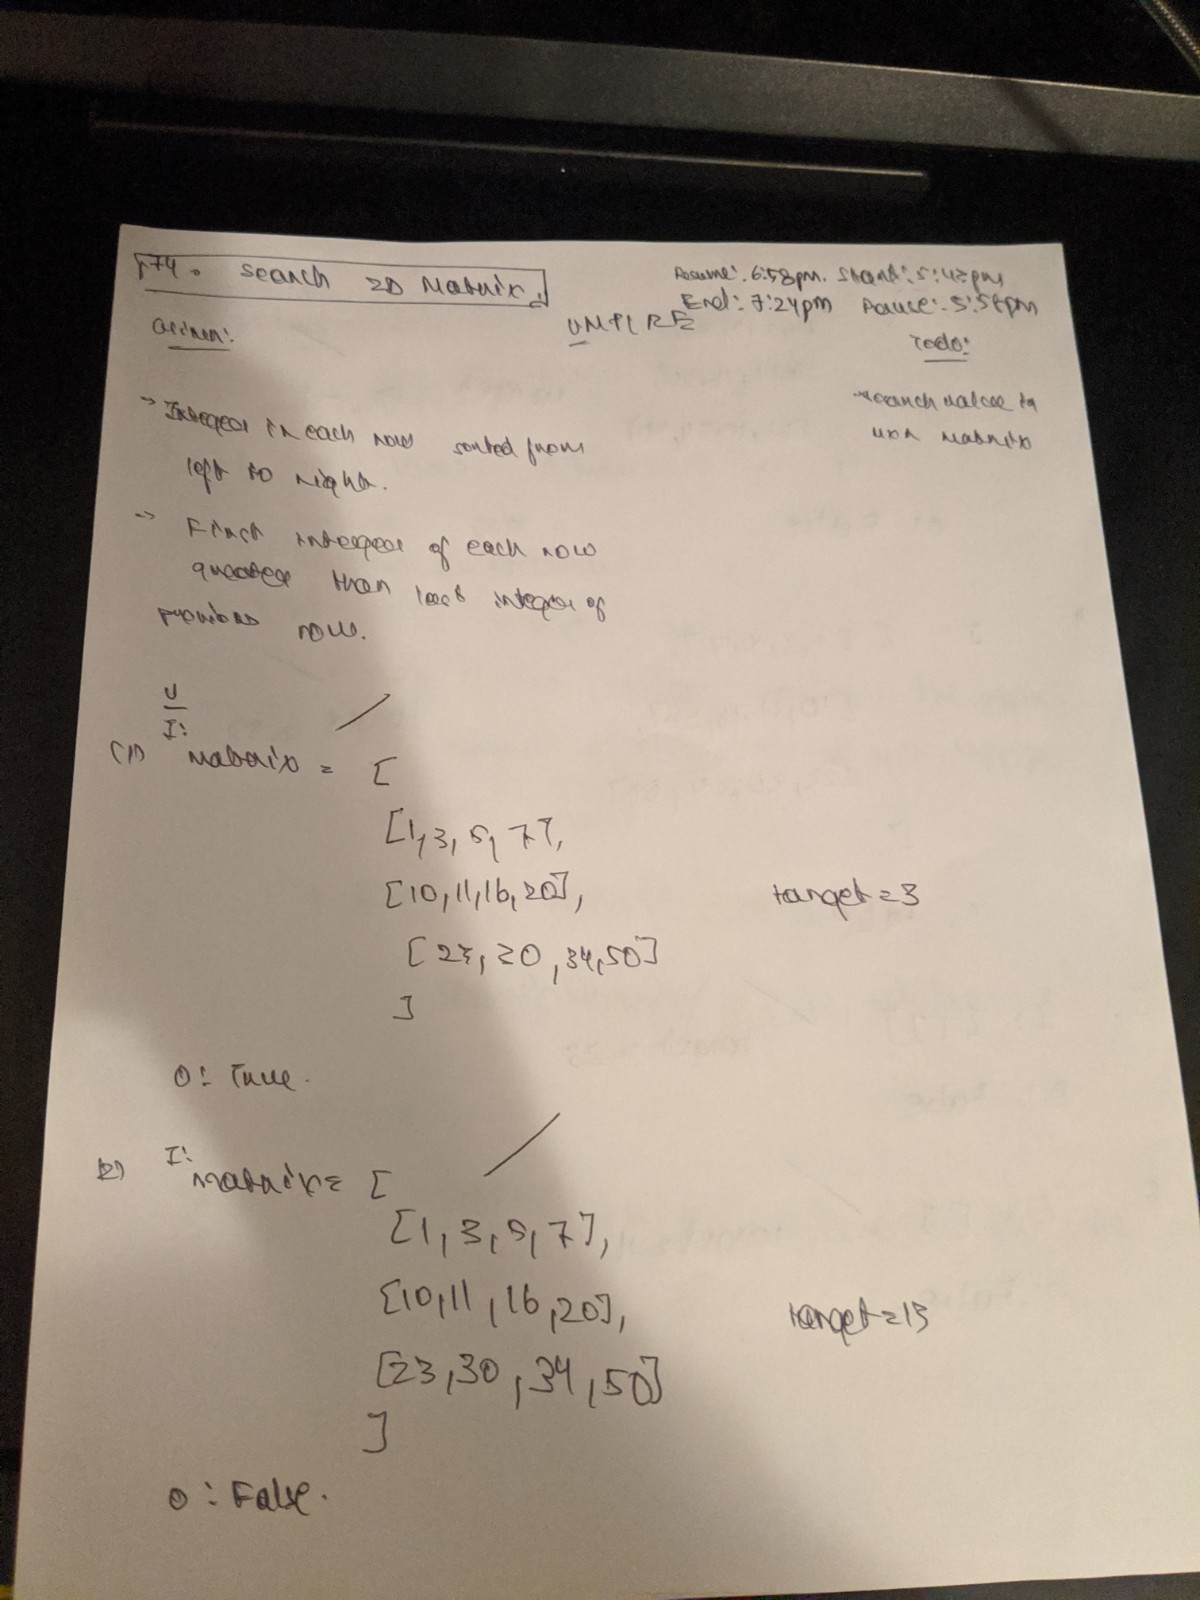 74. Search 2D Matrix.
Resume: 6:58pm. Start: 5:42pm
End: 7:24pm Pause: 5:54pm
UMPIRE
Given:
Todo:
→ Search value in
mxn matrix
→ Integer in each row sorted from
left to right.
→ First integer of each row
greater than last integer of
previous row.
U
I:
(1) matrix = [
[1,3,5,7],
[10,11,16,20],
target=3
[23,30,34,50]
]
O: True.
(2) I:
matrix= [
[1,3,5,7],
[10,11,16,20],
target=13
[23,30,34,50]
]
O: False.